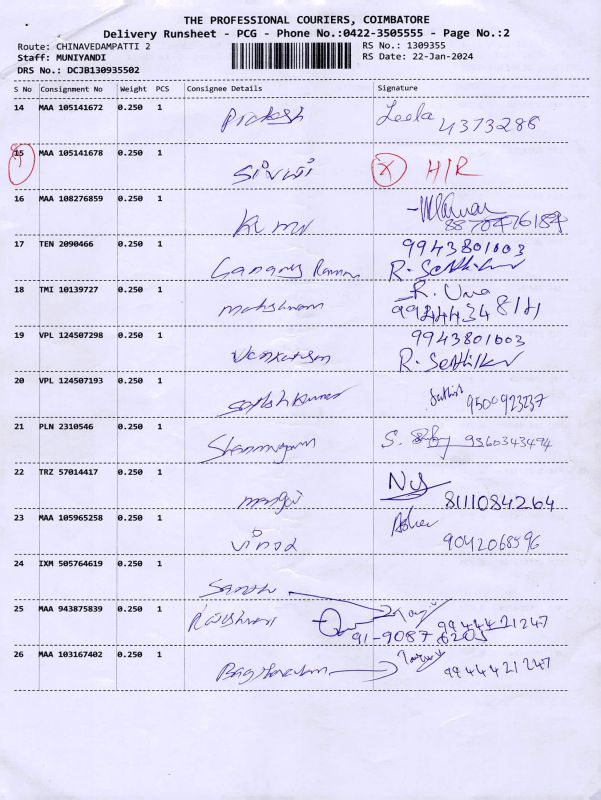 THE PROFESSIONAL COURIERS, COIMBATORE
Delivery Runsheet - PCG - Phone No.:0422-3505555 - Page No.:2
Route: CHINAVEDAMPATTI 2 RS No.: 1309355
Staff: MUNIYANDI RS Date: 22-Jan-2024
DRS No.: DCJB130935502
S No Consignment No Weight PCS Consignee Details Signature
14 MAA 105141672 0.250 1 Prakash Leela 4373286
15 MAA 105141678 0.250 1 X H/R
16 MAA 108276859 0.250 1
17 TEN 2090466 0.250 1 9943801003
18 TMI 10139727 0.250 1 R. Uma
19 VPL 124507298 0.250 1 9943801003
20 VPL 124507193 0.250 1 Sathish Kumar 9500923237
21 PLN 2310546 0.250 1 Shanmugam S. 9360343494
22 TRZ 57014417 0.250 1 8111084264
23 MAA 105965258 0.250 1 Vinod 9042068596
24 IXM 505764619 0.250 1
25 MAA 943875839 0.250 1 9944421247
91-9087 6205
26 MAA 103167402 0.250 1 9944421247